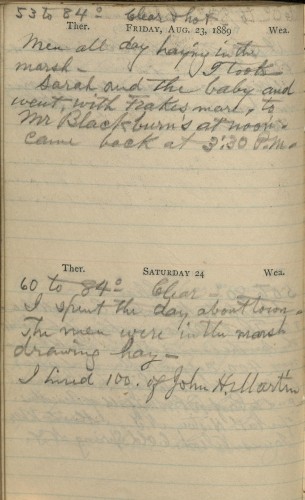 53 to 84° Clear & hot
Ther. FRIDAY, AUG. 23, 1889 Wea.
Men all day haying in the
marsh — I took
Sarah and the baby and
went with mare, to
Mr Blackburn's at noon.
Came back at 3:30 P.M.
Ther. SATURDAY 24 Wea.
60 to 84° Clear —
I spent the day about town —
The men were in the marsh
drawing hay —
I hired 100. of John H. Martin